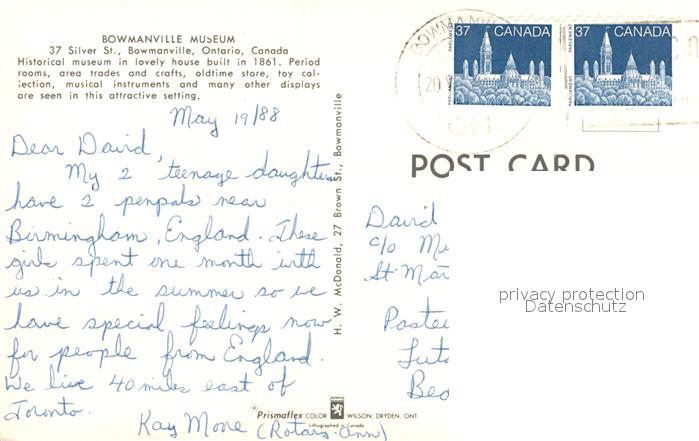 BOWMANVILLE MUSEUM
37 Silver St., Bowmanville, Ontario, Canada
Historical museum in lovely house built in 1861. Period
rooms, area trades and crafts, oldtime store, toy col-
lection, musical instruments and many other displays
are seen in this attractive setting.
May 19/88
Dear David,
My 2 teenage daughters
have 2 penpals near
Birmingham, England. These
girls spent one month with
us in the summer so we
have special feelings now
for people from England.
We live 40 miles east of
Toronto.
Kay Moore (Rotary-Ann)
H. W. McDonald, 27 Brown St., Bowmanville
Prismaflex COLOR WILSON, DRYDEN, ONT
Lithographed in Canada
37 CANADA
PARLIAMENT
PARLEMENT
37 CANADA
PARLIAMENT
PARLEMENT
POST CARD
David
c/o
St Mar
privacy protection
Datenschutz